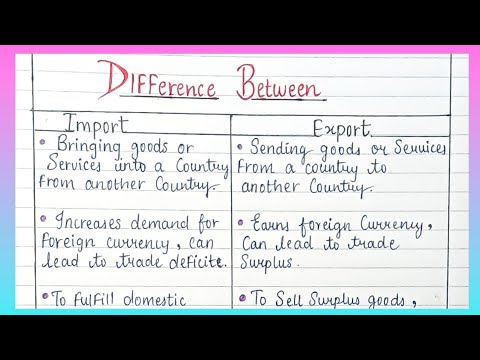 Difference Between
Import
• Bringing goods or
Services into a Country
from another Country.
• Increases demand for
foreign currency, can
lead to trade deficite.
• To fulfill domestic
Export
• Sending goods or Services
from a country to
another Country.
• Earns foreign Currency,
Can lead to trade
Surplus.
• To Sell Surplus goods,